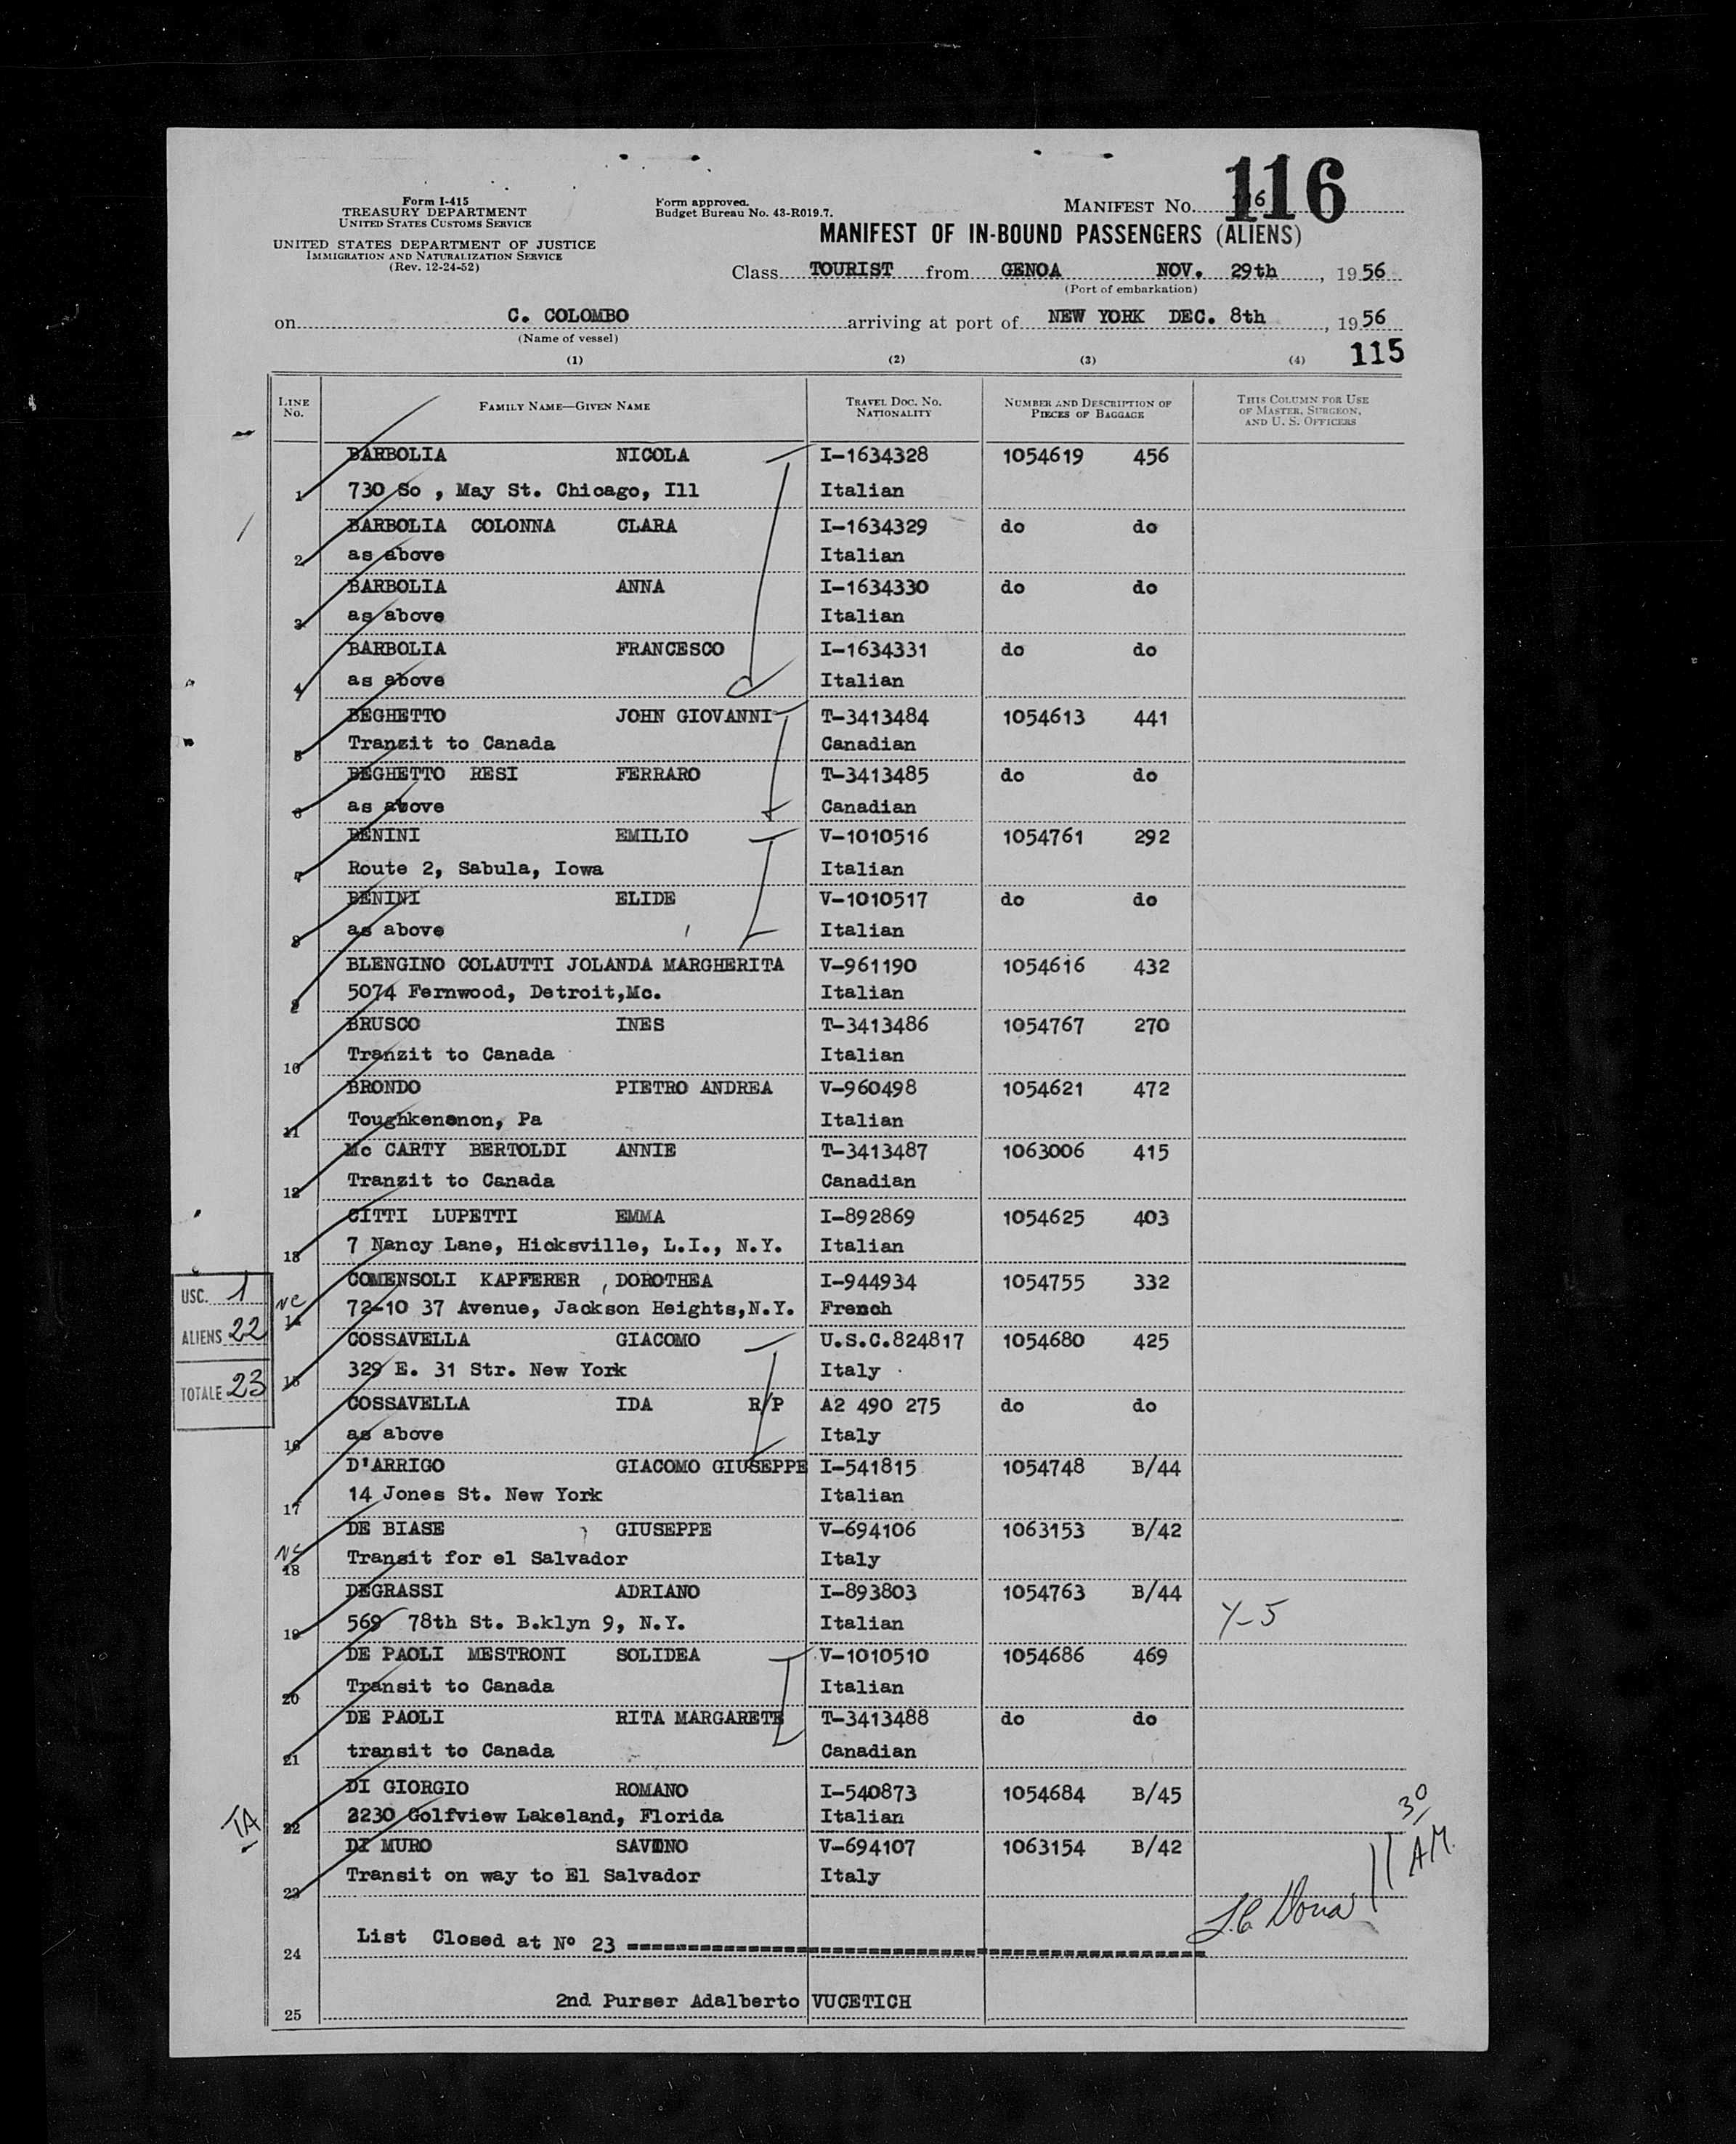 116
Form I-415
TREASURY DEPARTMENT
UNITED STATES CUSTOMS SERVICE
UNITED STATES DEPARTMENT OF JUSTICE
IMMIGRATION AND NATURALIZATION SERVICE
(Rev. 12-24-52)
Form approved.
Budget Bureau No. 43-R019.7.
MANIFEST NO.
MANIFEST OF IN-BOUND PASSENGERS (ALIENS)
Class TOURIST from GENOA NOV. 29th, 1956
(Port of embarkation)
on C. COLOMBO arriving at port of NEW YORK DEC. 8th, 1956
(Name of vessel)
115
(1) (2) (3) (4)
LINE NO. FAMILY NAME—GIVEN NAME TRAVEL DOC. NO. NATIONALITY NUMBER AND DESCRIPTION OF PIECES OF BAGGAGE THIS COLUMN FOR USE OF MASTER, SURGEON, AND U. S. OFFICERS
BARBOLIA NICOLA I-1634328 1054619 456
1 730 So , May St. Chicago, Ill Italian
BARBOLIA COLONNA CLARA I-1634329 do do
2 as above Italian
BARBOLIA ANNA I-1634330 do do
3 as above Italian
BARBOLIA FRANCESCO I-1634331 do do
4 as above Italian
BEGHETTO JOHN GIOVANNI T-3413484 1054613 441
5 Tranzit to Canada Canadian
BEGHETTO RESI FERRARO T-3413485 do do
6 as above Canadian
BENINI EMILIO V-1010516 1054761 292
7 Route 2, Sabula, Iowa Italian
BENINI ELIDE V-1010517 do do
8 as above Italian
BLENGINO COLAUTTI JOLANDA MARGHERITA V-961190 1054616 432
9 5074 Fernwood, Detroit,Mc. Italian
BRUSCO INES T-3413486 1054767 270
10 Tranzit to Canada Italian
BRONDO PIETRO ANDREA V-960498 1054621 472
11 Toughkenenon, Pa Italian
Mc CARTY BERTOLDI ANNIE T-3413487 1063006 415
12 Tranzit to Canada Canadian
CITTI LUPETTI EMMA I-892869 1054625 403
13 7 Nancy Lane, Hicksville, L.I., N.Y. Italian
COMENSOLI KAPFERER , DOROTHEA I-944934 1054755 332
nc 14 72-10 37 Avenue, Jackson Heights,N.Y. French
COSSAVELLA GIACOMO U.S.C.824817 1054680 425
15 329 E. 31 Str. New York Italy
COSSAVELLA IDA R/P A2 490 275 do do
16 as above Italy
D'ARRIGO GIACOMO GIUSEPPE I-541815 1054748 B/44
17 14 Jones St. New York Italian
DE BIASE GIUSEPPE V-694106 1063153 B/42
nc 18 Transit for el Salvador Italy
DEGRASSI ADRIANO I-893803 1054763 B/44
19 569 78th St. B.klyn 9, N.Y. Italian Y-5
DE PAOLI MESTRONI SOLIDEA V-1010510 1054686 469
20 Transit to Canada Italian
DE PAOLI RITA MARGARETE T-3413488 do do
21 transit to Canada Canadian
DI GIORGIO ROMANO I-540873 1054684 B/45
22 2230 Golfview Lakeland, Florida Italian
DI MURO V-694107 1063154 B/42
23 Transit on way to El Salvador Italy
24 List Closed at Nº 23
25 2nd Purser Adalberto VUCETICH
USC. 1
ALIENS 22
TOTALE 23
TA
11 30 A.M.